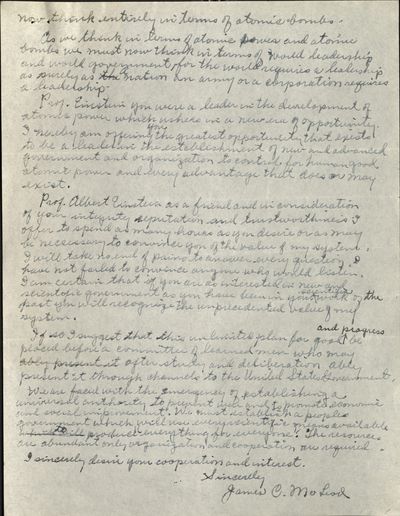 now think entirely in terms of atomic bombs.
As we think in terms of atomic power and atomic
bombs we must now think in terms of world leadership
and world government, for the world requires a leadership
as surely as the nation an army or a corporation requires
a leadership.
Prof. Einstein you were a leader in the development of
atomic power which ushers in a new era of opportunity.
I hereby am offering you the greatest opportunity that exists
to be a leader in the establishment of new and advanced
government and organization to control for human good
atomic power and every advantage that does or may
exist.
Prof. Albert Einstein as a friend and in consideration
of your integrity reputation and trustworthiness I
offer to spend as many hours as you desire or as may
be necessary to convince you of the value of my system.
I will take no end of pains to answer every question, I
have not failed to convince anyone who would listen.
I am certain that if you are as interested in new and
scientific government as you have been in your work of the
past you will recognize the unprecedented value of my
system.
If so I suggest that this unlimited plan for good and progress be
placed before a committee of learned men who may
ably present it after study and deliberation ably
present it through channels to the United States Government.
We are faced with the emergency of establishing a
universal authority to prevent war and to promote economic
and social improvement. We must establish a peoples
government which will use every scientific means available
to produce everything for everyone. The resources
are abundant only organization and cooperation are required.
I sincerely desire your cooperation and interest.
Sincerely
James C. McLeod